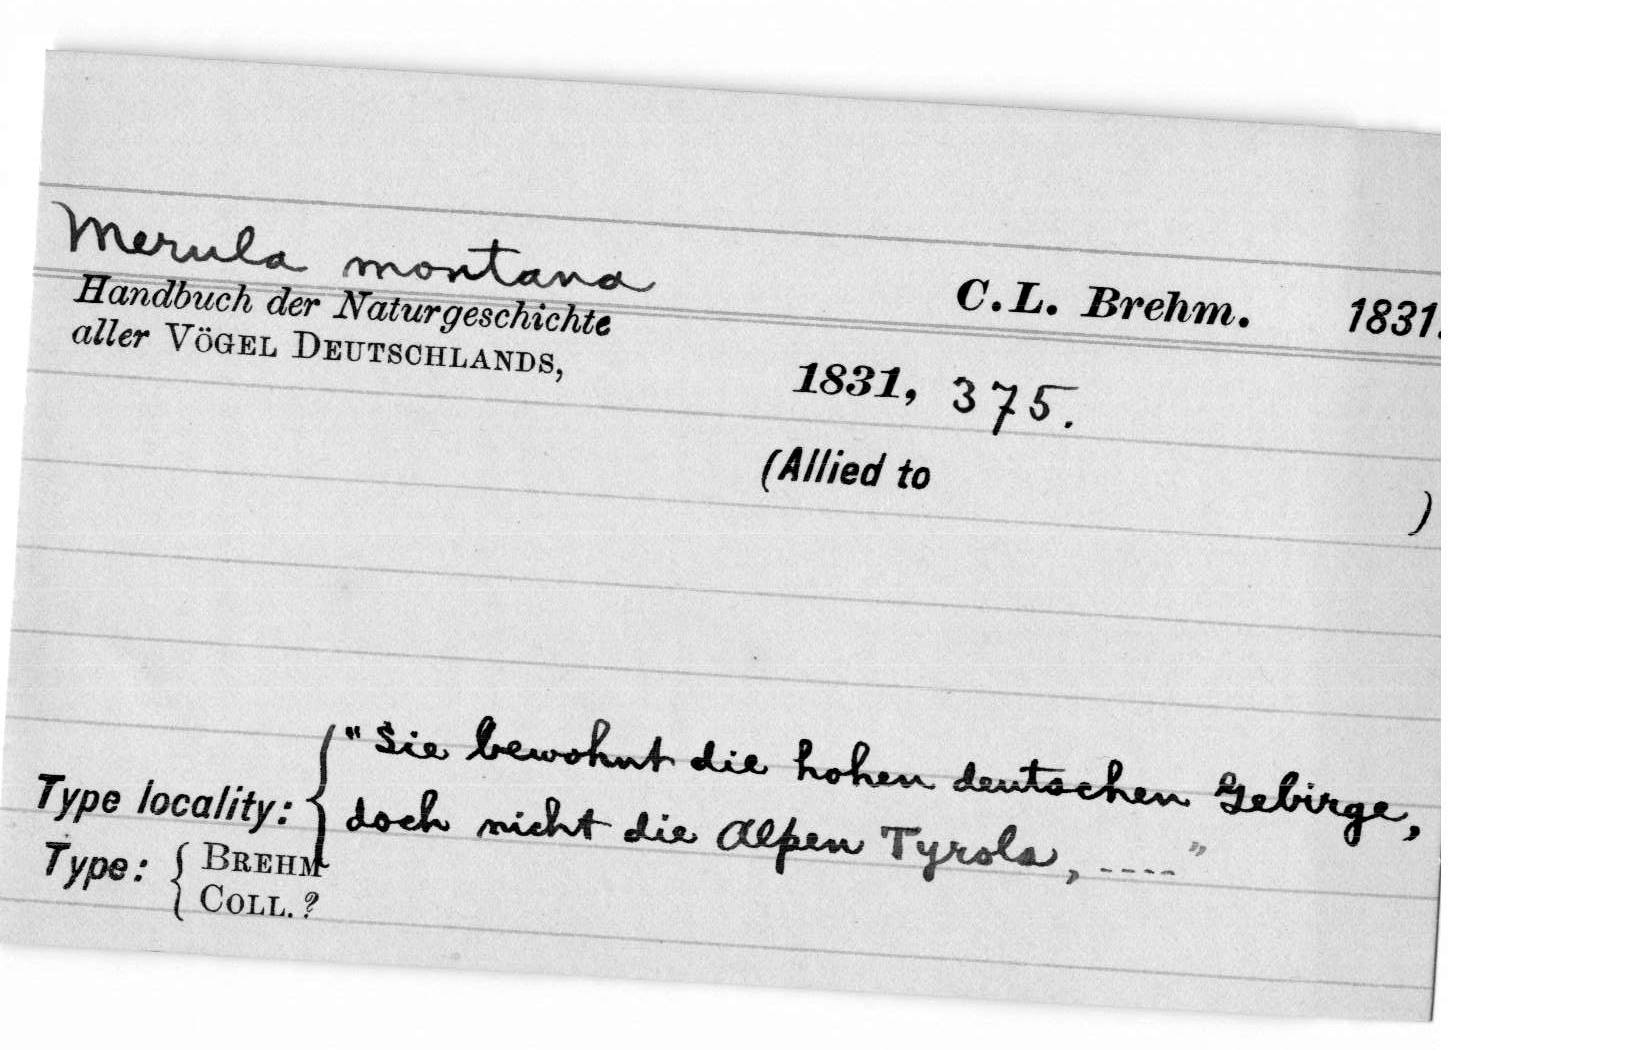 Merula montana
C.L. Brehm. 1831.
Handbuch der Naturgeschichte
aller VÖGEL DEUTSCHLANDS,
1831, 375.
(Allied to )
Type locality: { "Sie bewohnt die hohen deutschen Gebirge,
doch nicht die Alpen Tyrols, ----"
Type: { BREHM
COLL. ?